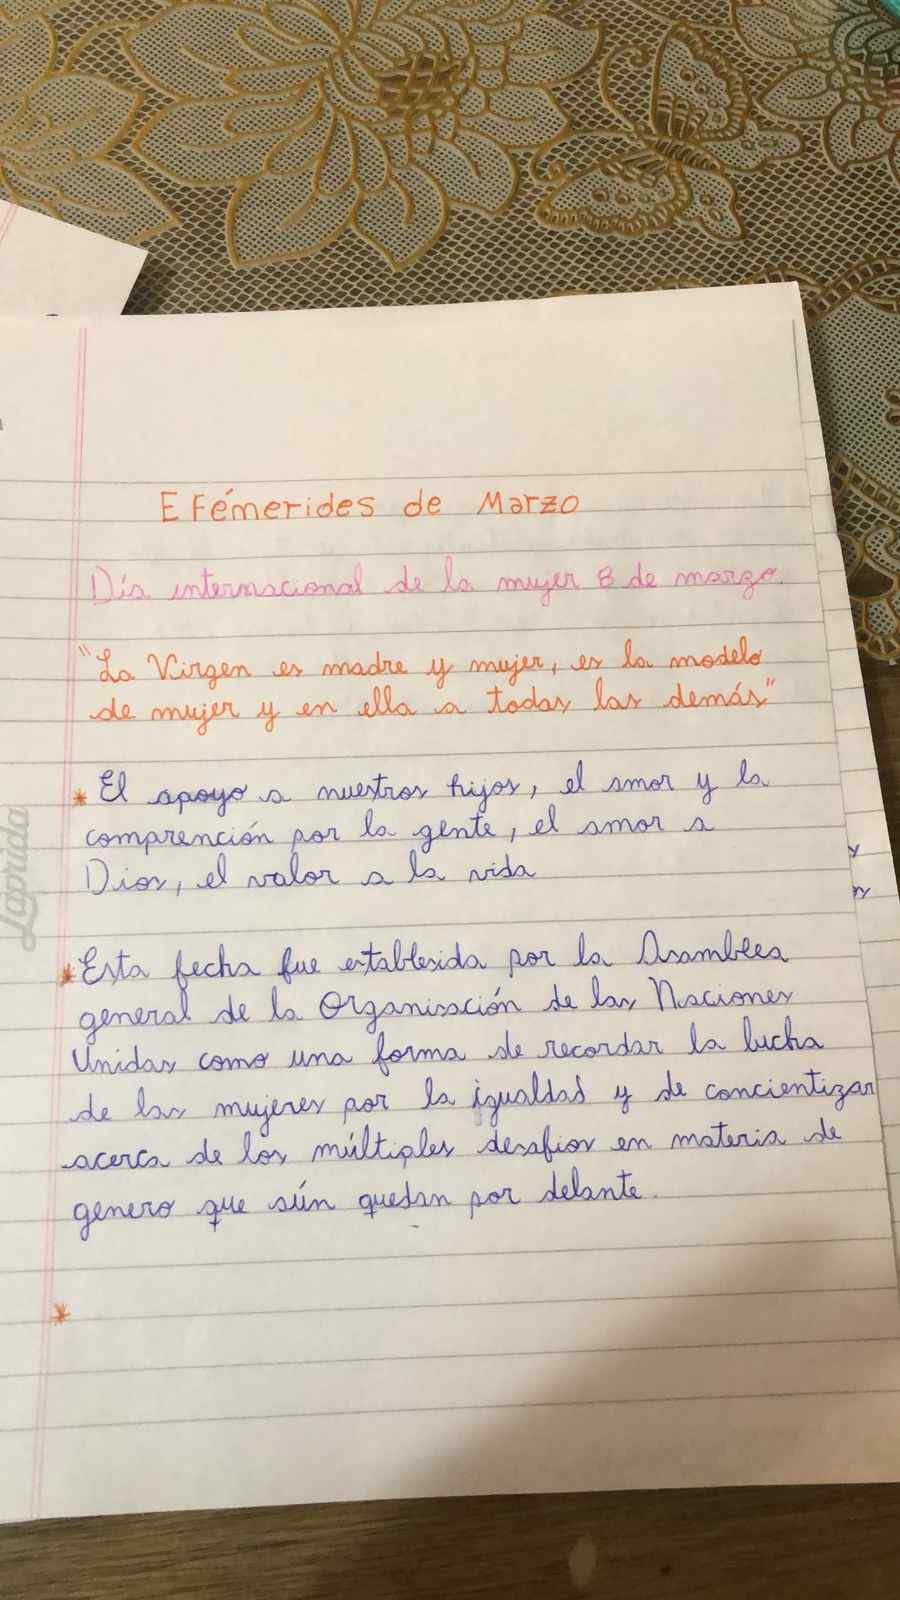 Efémerides de Marzo
Día internacional de la mujer 8 de marzo.
"La Virgen es madre y mujer, es la modelo
de mujer y en ella a todas las demás"
* El apoyo a nuestros hijos, el amor y la
comprención por la gente, el amor a
Dios, el valor a la vida
* Esta fecha fue establesida por la Asamblea
general de la Organisación de las Naciones
Unidas como una forma de recordar la lucha
de las mujeres por la igualdad y de concientizar
acerca de los múltiples desafios en materia de
genero que aún quedan por delante.
*
Laprida